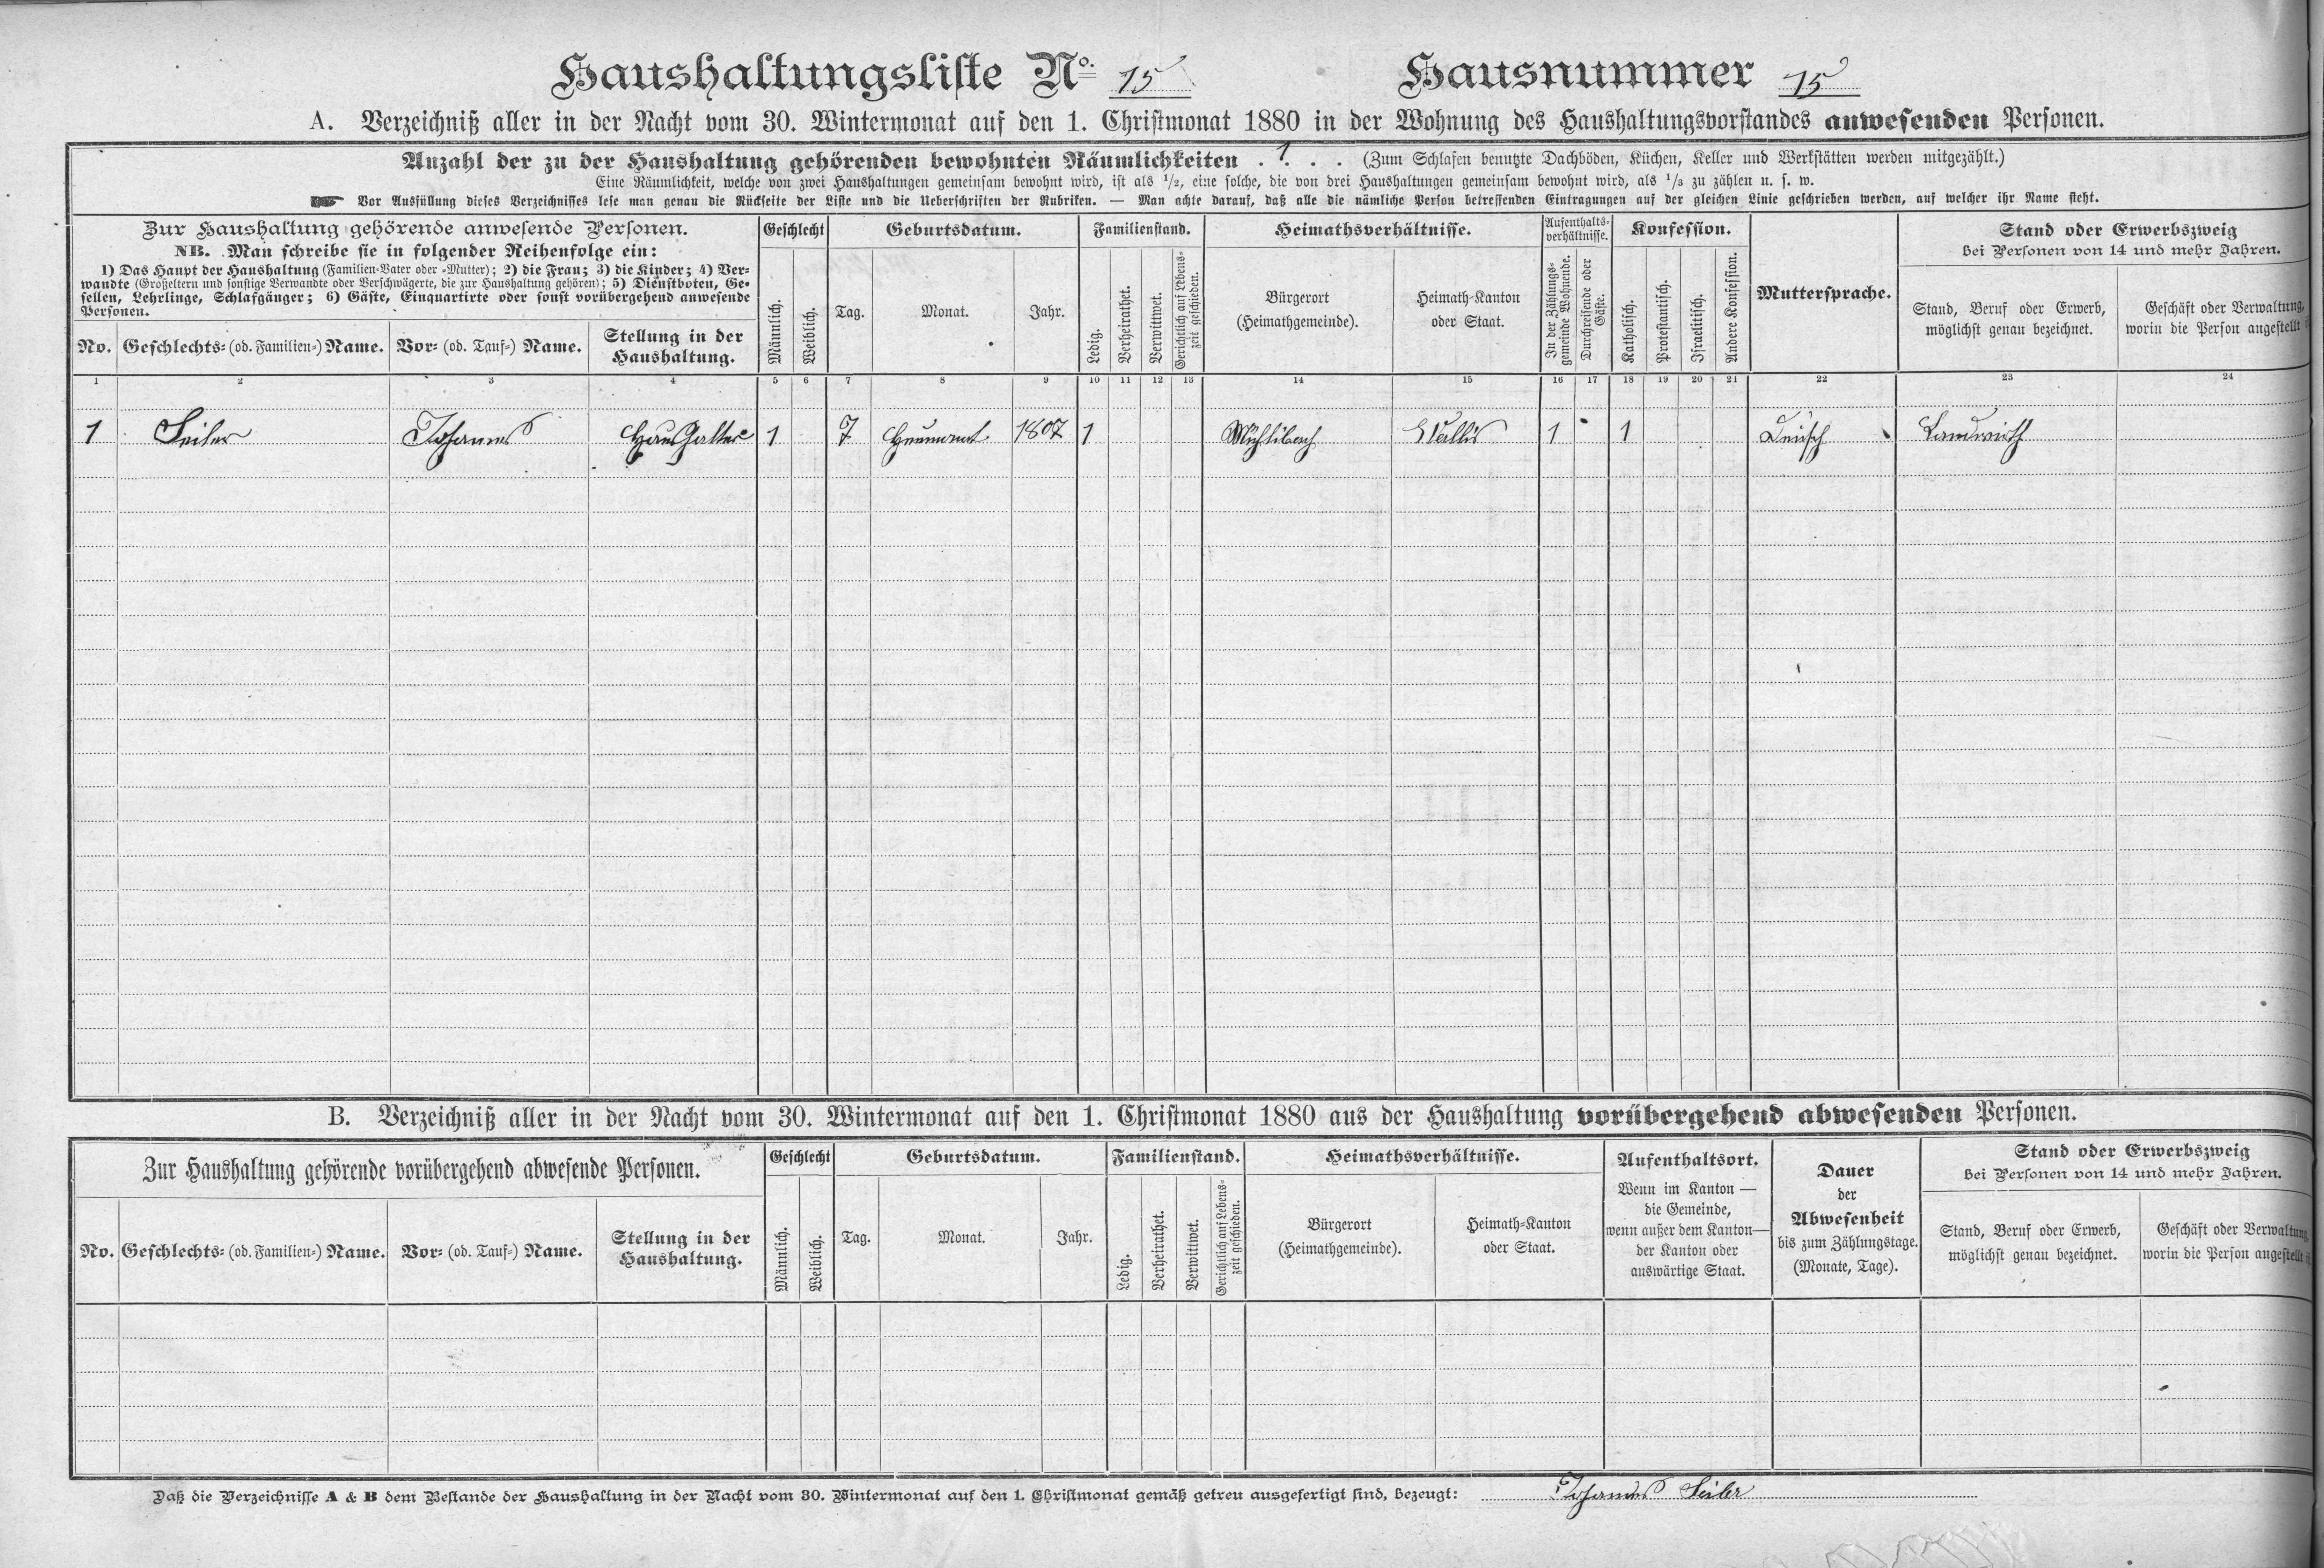 Haushaltungsliste No. 15 Hausnummer 15
A. Verzeichniß aller in der Nacht vom 30. Wintermonat auf den 1. Christmonat 1880 in der Wohnung des Haushaltungsvorstandes anwesenden Personen.
Anzahl der zu der Haushaltung gehörenden bewohnten Räumlichkeiten . 1 . . (Zum Schlafen benutzte Dachböden, Küchen, Keller und Werkstätten werden mitgezählt.)
Eine Räumlichkeit, welche von zwei Haushaltungen gemeinsam bewohnt wird, ist als 1/2, eine solche, die von drei Haushaltungen gemeinsam bewohnt wird, als 1/3 zu zählen u. s. w.
Vor Ausfüllung dieses Verzeichnisses lese man genau die Rückseite der Liste und die Ueberschriften der Rubriken. — Man achte darauf, daß alle die nämliche Person betreffenden Eintragungen auf der gleichen Linie geschrieben werden, auf welcher ihr Name steht.
Zur Haushaltung gehörende anwesende Personen.
NB. Man schreibe sie in folgender Reihenfolge ein:
1) Das Haupt der Haushaltung (Familien-Vater oder -Mutter); 2) die Frau; 3) die Kinder; 4) Ver-
wandte (Großeltern und sonstige Verwandte oder Verschwägerte, die zur Haushaltung gehören); 5) Dienstboten, Ge-
sellen, Lehrlinge, Schlafgänger; 6) Gäste, Einquartirte oder sonst vorübergehend anwesende
Personen.
No. Geschlechts- (od. Familien-) Name. Vor- (od. Tauf-) Name. Stellung in der
Haushaltung.
Geschlecht
Männlich. Weiblich.
Geburtsdatum.
Tag. Monat. Jahr.
Familienstand.
Ledig. Verheirathet. Verwittwet. Gerichtlich auf Lebens-
zeit geschieden.
Heimathsverhältnisse.
Bürgerort
(Heimathgemeinde).
Heimath-Kanton
oder Staat.
Aufenthalts-
verhältnisse.
In der Zählungs-
gemeinde Wohnende.
Durchreisende oder
Gäste.
Konfession.
Katholisch. Protestantisch. Israelitisch. Andere Konfession.
Muttersprache.
Stand oder Erwerbszweig
bei Personen von 14 und mehr Jahren.
Stand, Beruf oder Erwerb,
möglichst genau bezeichnet.
Geschäft oder Verwaltung,
worin die Person angestellt
1 2 3 4 5 6 7 8 9 10 11 12 13 14 15 16 17 18 19 20 21 22 23 24
1 Seiler Johannes Haushalter 1 7 Heumonat 1807 1 Mühlibach Wallis 1 1 Deutsch Landwirth
B. Verzeichniß aller in der Nacht vom 30. Wintermonat auf den 1. Christmonat 1880 aus der Haushaltung vorübergehend abwesenden Personen.
Zur Haushaltung gehörende vorübergehend abwesende Personen.
No. Geschlechts- (od. Familien-) Name. Vor- (od. Tauf-) Name. Stellung in der
Haushaltung.
Geschlecht
Männlich. Weiblich.
Geburtsdatum.
Tag. Monat. Jahr.
Familienstand.
Ledig. Verheirathet. Verwittwet. Gerichtlich auf Lebens-
zeit geschieden.
Heimathsverhältnisse.
Bürgerort
(Heimathgemeinde).
Heimath-Kanton
oder Staat.
Aufenthaltsort.
Wenn im Kanton —
die Gemeinde,
wenn außer dem Kanton—
der Kanton oder
auswärtige Staat.
Dauer
der
Abwesenheit
bis zum Zählungstage.
(Monate, Tage).
Stand oder Erwerbszweig
bei Personen von 14 und mehr Jahren.
Stand, Beruf oder Erwerb,
möglichst genau bezeichnet.
Geschäft oder Verwaltung
worin die Person angestellt
Daß die Verzeichnisse A & B dem Bestande der Haushaltung in der Nacht vom 30. Wintermonat auf den 1. Christmonat gemäß getreu ausgefertigt sind, bezeugt: Johannes Seiler